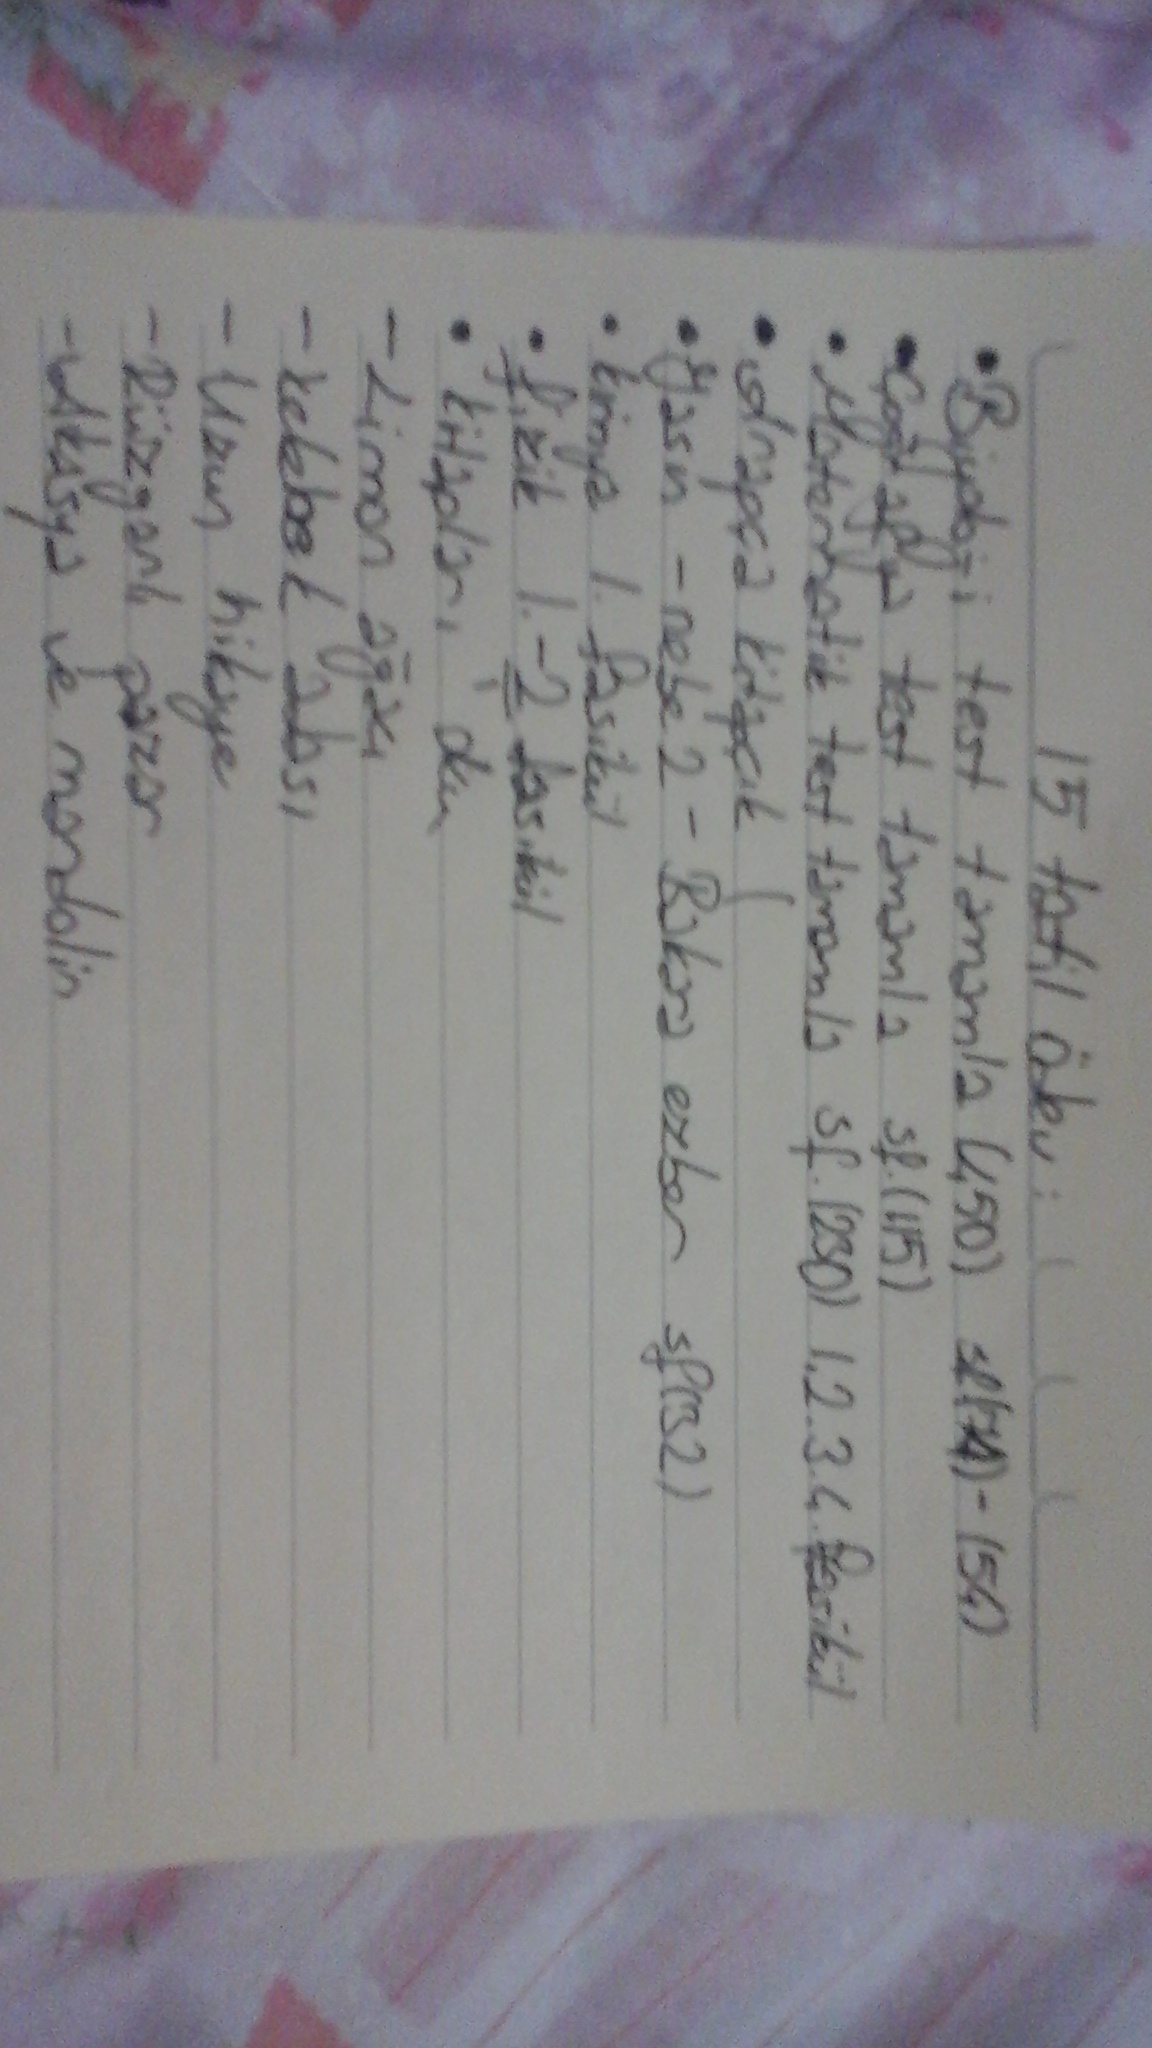 15 tatil ödev:
• Biyoloji test tamamla (1,50) sf(74) - 154)
• Coğrafya test tamamla sf.(115)
• Matematik test tamamla sf.(230) 1.2.3.4. fasikül
• Arapça kitapçık
• Yasin - nebe 2 - Bakara ezber sf(132)
• kimya 1. fasikül
• fizik 1.-2 fasikül
• kitapları oku
- Limon ağacı
- kelebek
- Uzun hikaye
- Rüzgarlı pazar
- Atkasya ve mandolin